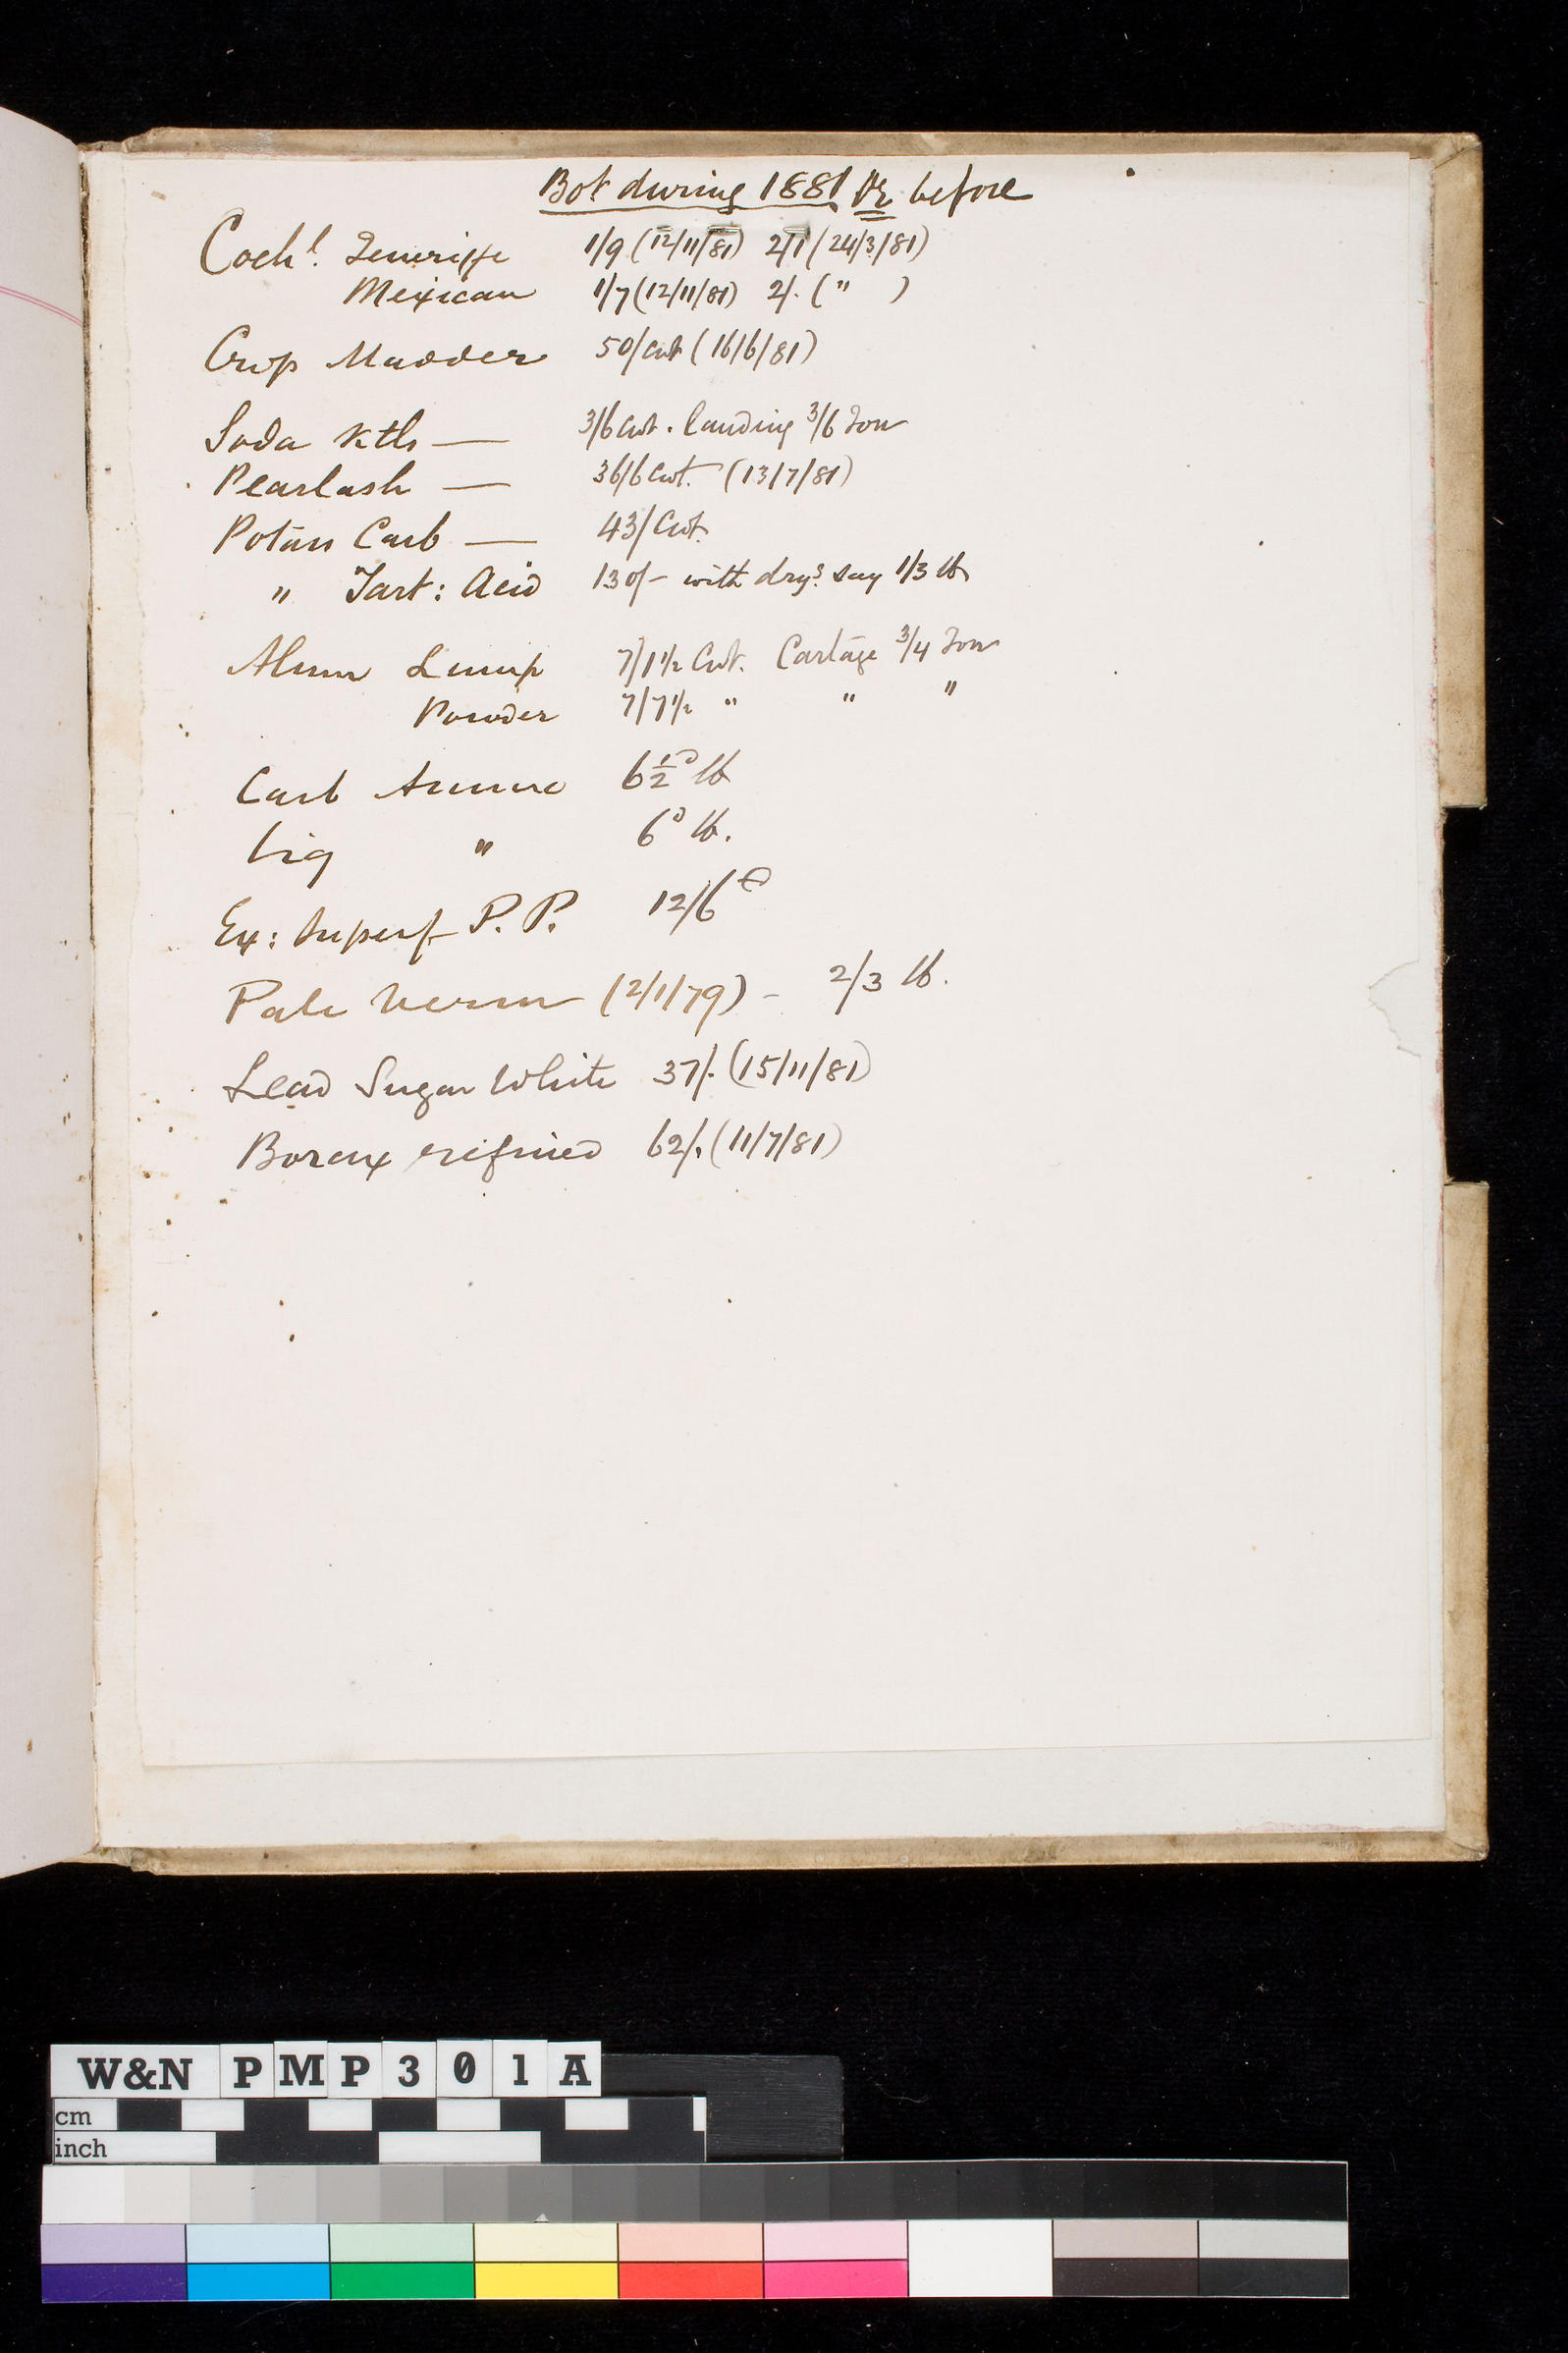 Bot during 1881 or before
Cochl. Teneriffe 1/9 (12/11/81) 2/1 (24/3/81)
Mexican 1/7 (12/11/81) 2/. ( " )
Crop Madder 50/cwt (16/6/81)
Soda Xtls — 3/6 Cwt. landing 3/6 Ton
Pearlash — 36/6 Cwt. (13/7/81)
Potass Carb — 43/Cwt.
" Tart: Acid 130/- with drys. say 1/3 lb
Alum Lump 7/1½ Cwt. Cartage 3/4 Ton
Powder 7/7½ " " "
Carb Ammo 6½d lb
Liq " 6d lb.
Ex: Superf P. P. 12/6
Pale Verm (2/1/79) - 2/3 lb.
Lead Sugar White 37/. (15/11/81)
Borax refined 62/. (11/7/81)
W&N PMP301A
cm
inch